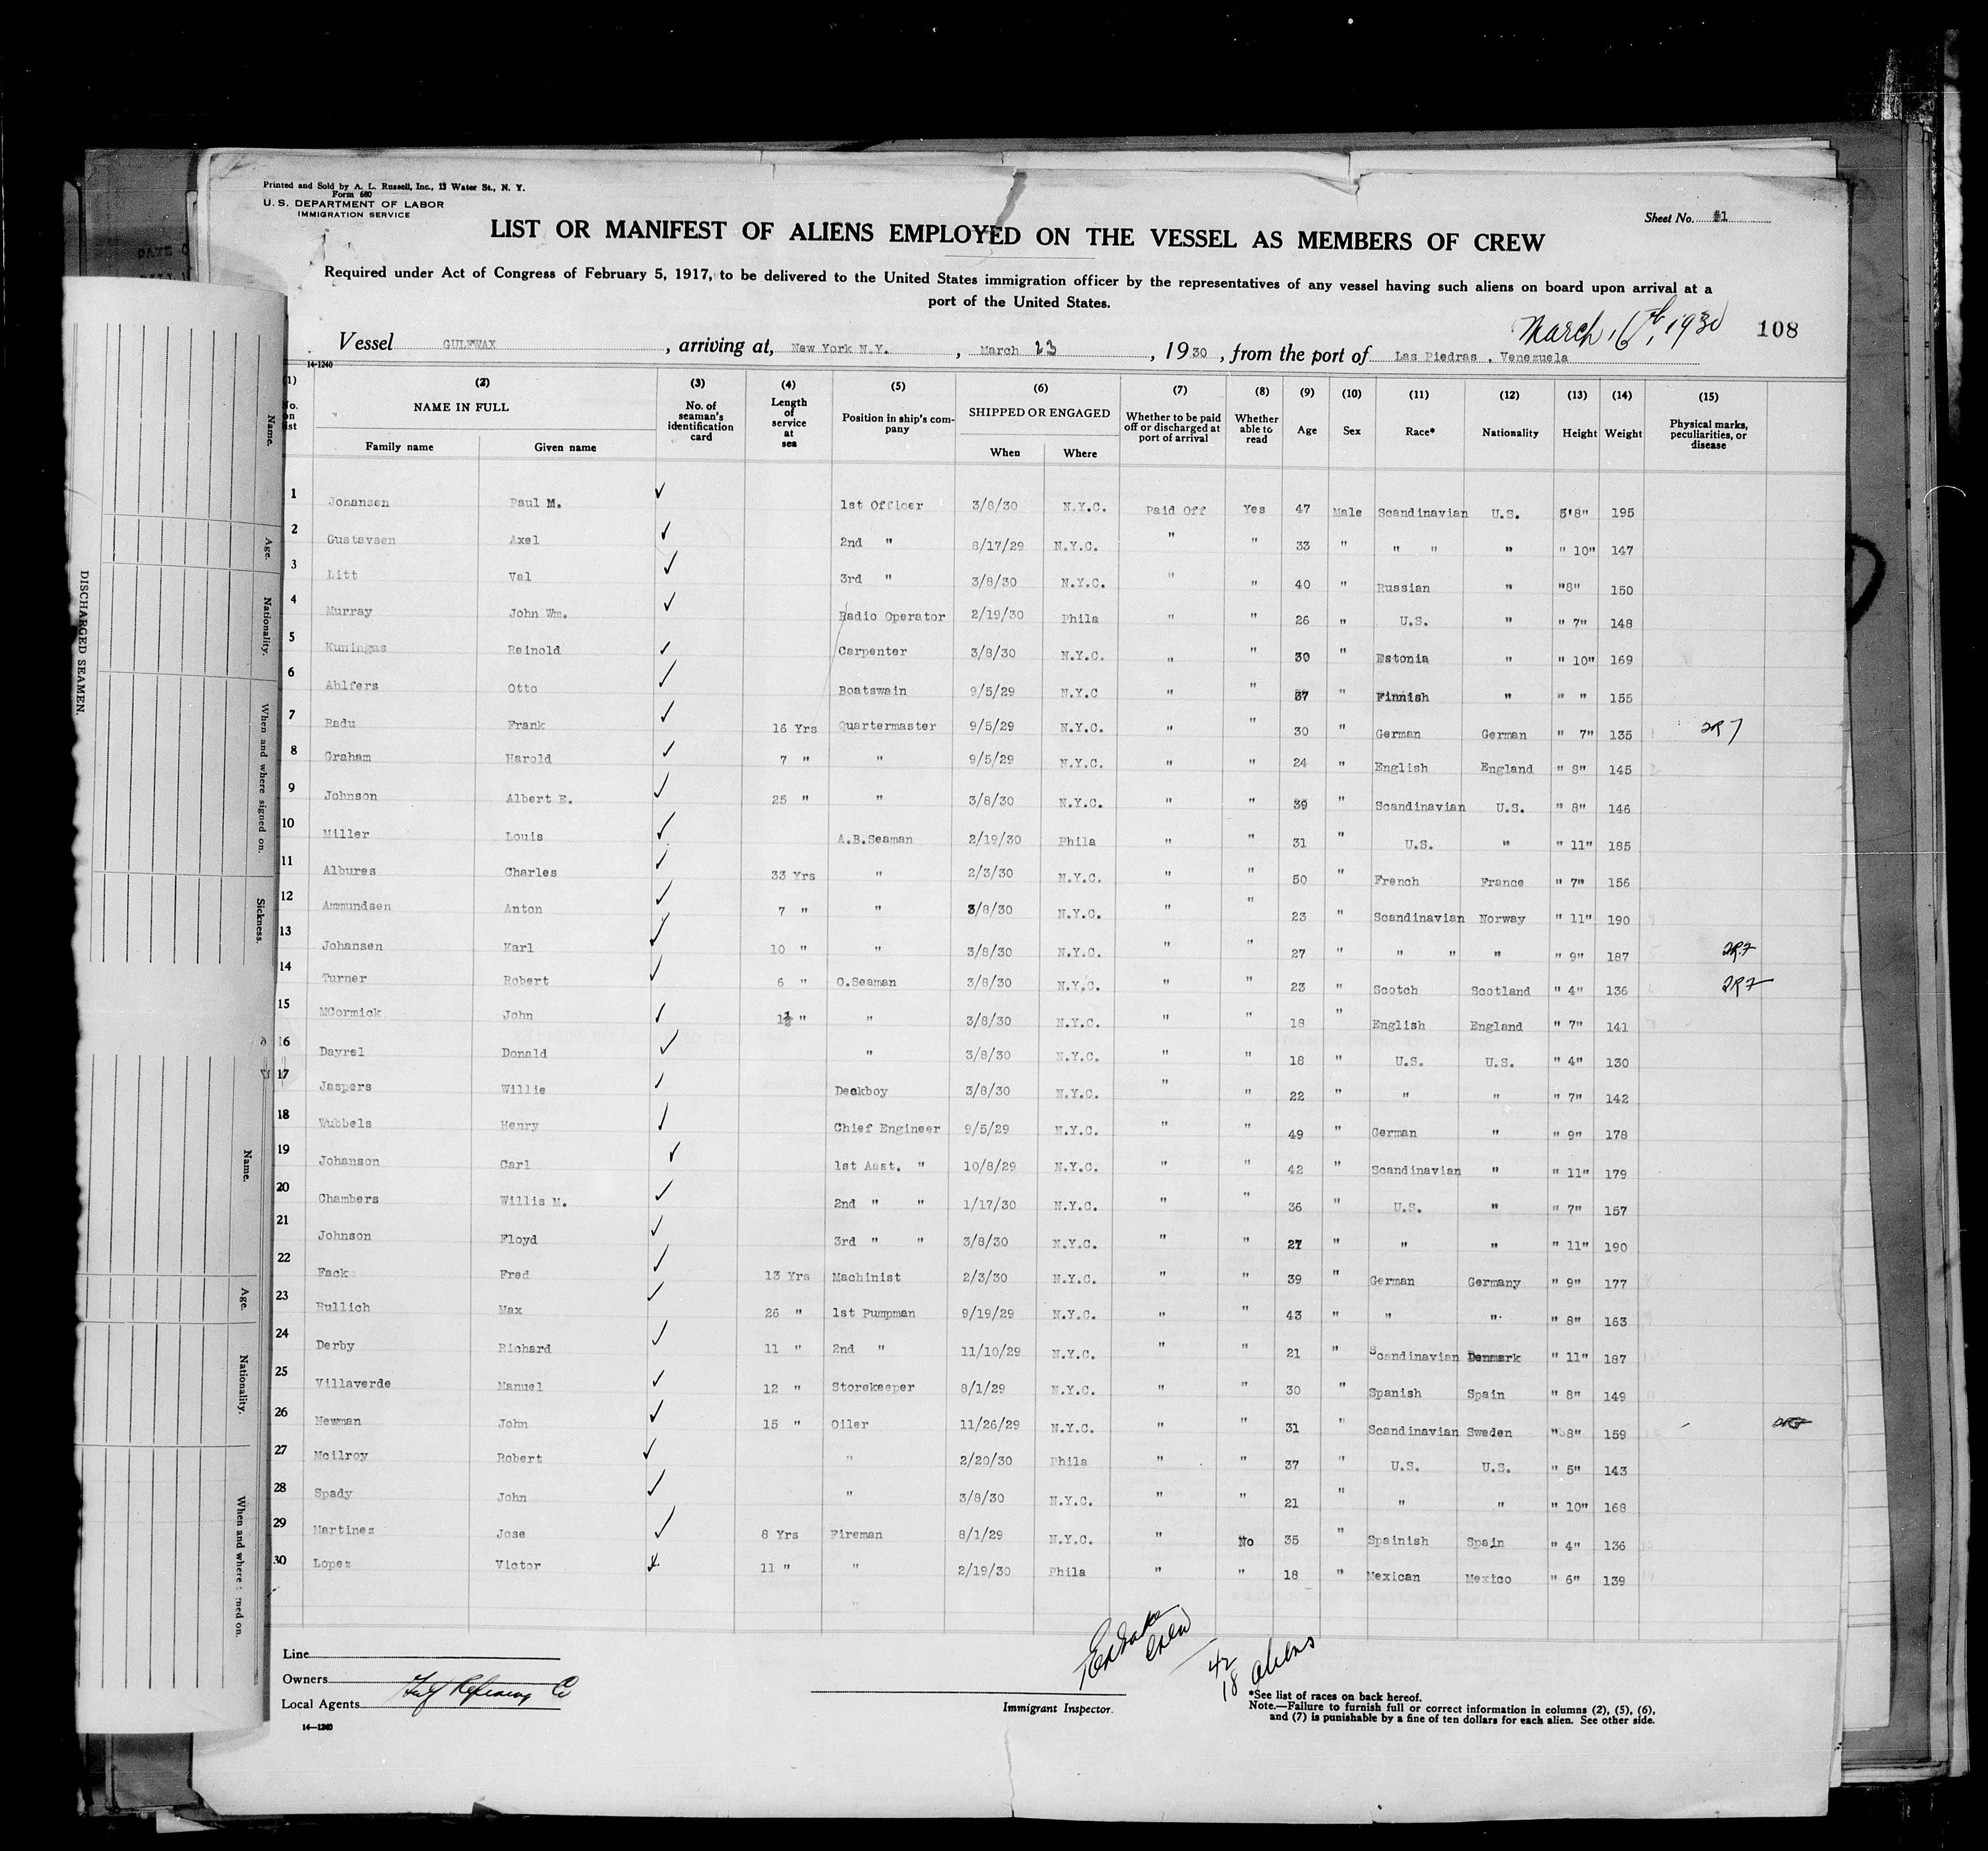 Printed and Sold by A. L. Russell, Inc., 13 Water St., N. Y.
Form 680
U. S. DEPARTMENT OF LABOR
IMMIGRATION SERVICE
Sheet No. #1
LIST OR MANIFEST OF ALIENS EMPLOYED ON THE VESSEL AS MEMBERS OF CREW
Required under Act of Congress of February 5, 1917, to be delivered to the United States immigration officer by the representatives of any vessel having such aliens on board upon arrival at a
port of the United States.
March, 16th, 1930 108
Vessel GULFWAX , arriving at, New York N.Y. , March 23 , 1930 , from the port of Las Piedras , Venezuela
14-1240
(1) (2) (3) (4) (5) (6) (7) (8) (9) (10) (11) (12) (13) (14) (15)
No. on list NAME IN FULL Family name Given name No. of seaman's identification card Length of service at sea Position in ship's company SHIPPED OR ENGAGED When Where Whether to be paid off or discharged at port of arrival Whether able to read Age Sex Race* Nationality Height Weight Physical marks, peculiarities, or disease
1 Johansen Paul M. ✓ 1st Officer 3/8/30 N.Y.C. Paid Off Yes 47 Male Scandinavian U.S. 5'8" 195
2 Gustavsen Axel ✓ 2nd " 8/17/29 N.Y.C. " " 33 " " " " " 10" 147
3 Litt Val ✓ 3rd " 3/8/30 N.Y.C. " " 40 " Russian " "8" 150
4 Murray John Wm. ✓ Radio Operator 2/19/30 Phila " " 26 " U.S. " " 7" 148
5 Kuningas Reinold ✓ Carpenter 3/8/30 N.Y.C. " " 30 " Estonia " " 10" 169
6 Ahlfers Otto ✓ Boatswain 9/5/29 N.Y.C " " 37 " Finnish " " " 155
7 Radu Frank ✓ 16 Yrs Quartermaster 9/5/29 N.Y.C. " " 30 " German German " 7" 135 2R7
8 Graham Harold ✓ 7 " " 9/5/29 N.Y.C. " " 24 " English England " 8" 145
9 Johnson Albert E. ✓ 25 " " 3/8/30 N.Y.C. " " 39 " Scandinavian U.S. " 8" 146
10 Miller Louis ✓ A.B.Seaman 2/19/30 Phila " " 31 " U.S. " " 11" 185
11 Albures Charles ✓ 33 Yrs " 2/3/30 N.Y.C. " " 50 " French France " 7" 156
12 Ammundsen Anton ✓ 7 " " 3/8/30 N.Y.C. " " 23 " Scandinavian Norway " 11" 190
13 Johansen Karl ✓ 10 " " 3/8/30 N.Y.C. " " 27 " " " " " 9" 187 2R7
14 Turner Robert ✓ 6 " O.Seaman 3/8/30 N.Y.C. " " 23 " Scotch Scotland " 4" 136 2R7
15 MCormick John ✓ 1½ " " 3/8/30 N.Y.C. " " 18 " English England " 7" 141
16 Dayrel Donald ✓ " 3/8/30 N.Y.C. " " 18 " U.S. U.S. " 4" 130
17 Jaspers Willie ✓ Deckboy 3/8/30 N.Y.C. " " 22 " " " " 7" 142
18 Wubbels Henry ✓ Chief Engineer 9/5/29 N.Y.C. " " 49 " German " " 9" 178
19 Johanson Carl ✓ 1st Asst. " 10/8/29 N.Y.C. " " 42 " Scandinavian " " 11" 179
20 Chambers Willis M. ✓ 2nd " " 1/17/30 N.Y.C. " " 36 " U.S. " " 7" 157
21 Johnson Floyd ✓ 3rd " " 3/8/30 N.Y.C. " " 27 " " " " 11" 190
22 Fack Fred ✓ 13 Yrs Machinist 2/3/30 N.Y.C. " " 39 " German Germany " 9" 177
23 Rullich Max ✓ 26 " 1st Pumpman 9/19/29 N.Y.C. " " 43 " " " " 8" 163
24 Derby Richard ✓ 11 " 2nd " 11/10/29 N.Y.C. " " 21 " Scandinavian Denmark " 11" 187
25 Villaverde Manuel ✓ 12 " Storekeeper 8/1/29 N.Y.C. " " 30 " Spanish Spain " 8" 149
26 Newman John ✓ 15 " Oiler 11/26/29 N.Y.C. " " 31 " Scandinavian Sweden " 8" 159
27 Mcilroy Robert ✓ " 2/20/30 Phila " " 37 " U.S. U.S. " 5" 143
28 Spady John ✓ " 3/8/30 N.Y.C. " " 21 " " " " 10" 168
29 Martinez Jose ✓ 8 Yrs Fireman 8/1/29 N.Y.C. " No 35 " Spainish Spain " 4" 136
30 Lopez Victor 11 " " 2/19/30 Phila " " 18 " Mexican Mexico " 6" 139
42
18 aliens
Line
Owners
Local Agents Gulf Refining Co
14—1240
Immigrant Inspector.
*See list of races on back hereof.
Note.—Failure to furnish full or correct information in columns (2), (5), (6),
and (7) is punishable by a fine of ten dollars for each alien. See other side.
DISCHARGED SEAMEN.
Name.
Age.
Nationality.
When and where signed on.
Sickness.
Name.
Age.
Nationality.